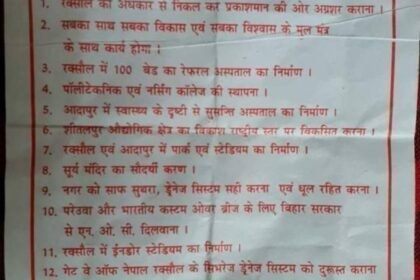 1. रक्सौल को अंधकार से निकल कर प्रकाशमान की ओर अग्रशर कराना ।
2. सबका साथ सबका विकास एवं सबका विश्वास के मुल मंत्र
के साथ कार्य होगा ।
3. रक्सौल में 100 बेड का रेफरल अस्पताल का निर्माण ।
4. पॉलीटेकनिक एवं नर्सिंग कॉलेज की स्थापना ।
5. आदापुर में स्वास्थ्य के दृष्टी से सुसज्जि अस्पताल का निर्माण ।
6. शीतलपुर औद्योगिक क्षेत्र का विकाश राष्ट्रीय स्तर पर विकसित करना ।
7. रक्सौल एवं आदापुर में पार्क एवं स्टेडियम का निर्माण ।
8. सुर्य मंदिर का सौदर्यी करण ।
9. नगर को साफ सुथरा, ड्रेनेज सिस्टम सही करना एवं धूल रहित करना ।
10. परेउवा और भारतीय कस्टम ओवर ब्रीज के लिए बिहार सरकार
से एन. ओ. सी. दिलवाना ।
11. रक्सौल में ईनडोर स्टेडियम का निर्माण ।
12. गेट वे ऑफ नेपाल रक्सौल के सिभरेज ड्रेनेज सिस्टम को दुरूस्त कराना